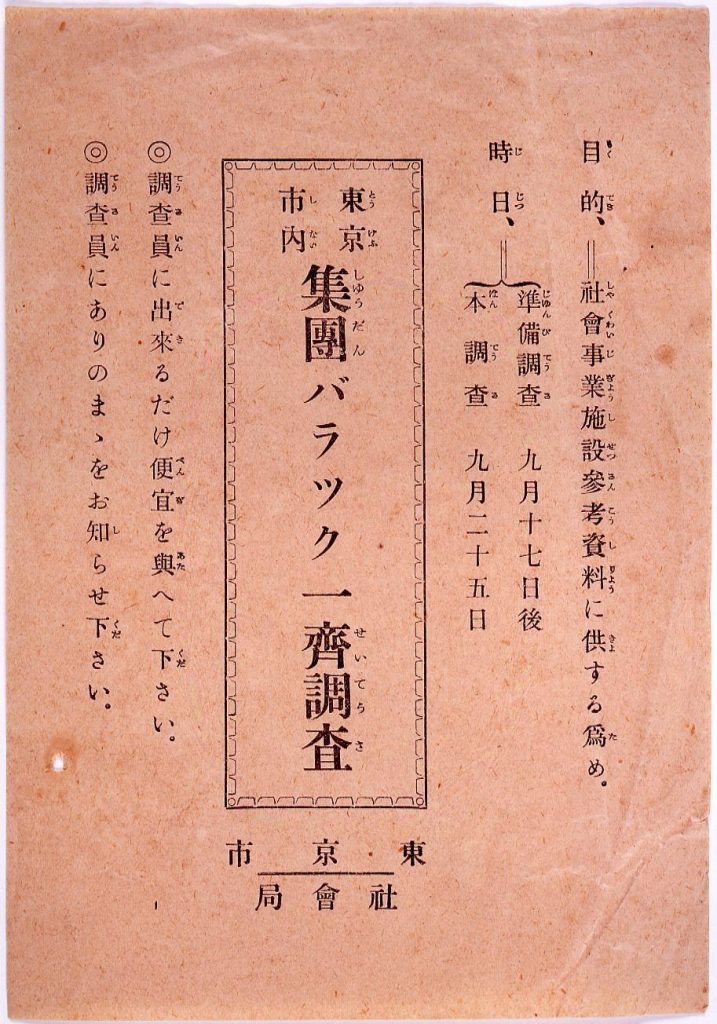 目的、＝社會事業施設參考資料に供する爲め。
時日、＝
準備調査 九月十七日後
本調査 九月二十五日
東京
市内
集團バラツク一齊調査
東京市
社會局
◎調査員に出來るだけ便宜を與へて下さい。
◎調査員にありのまゝをお知らせ下さい。